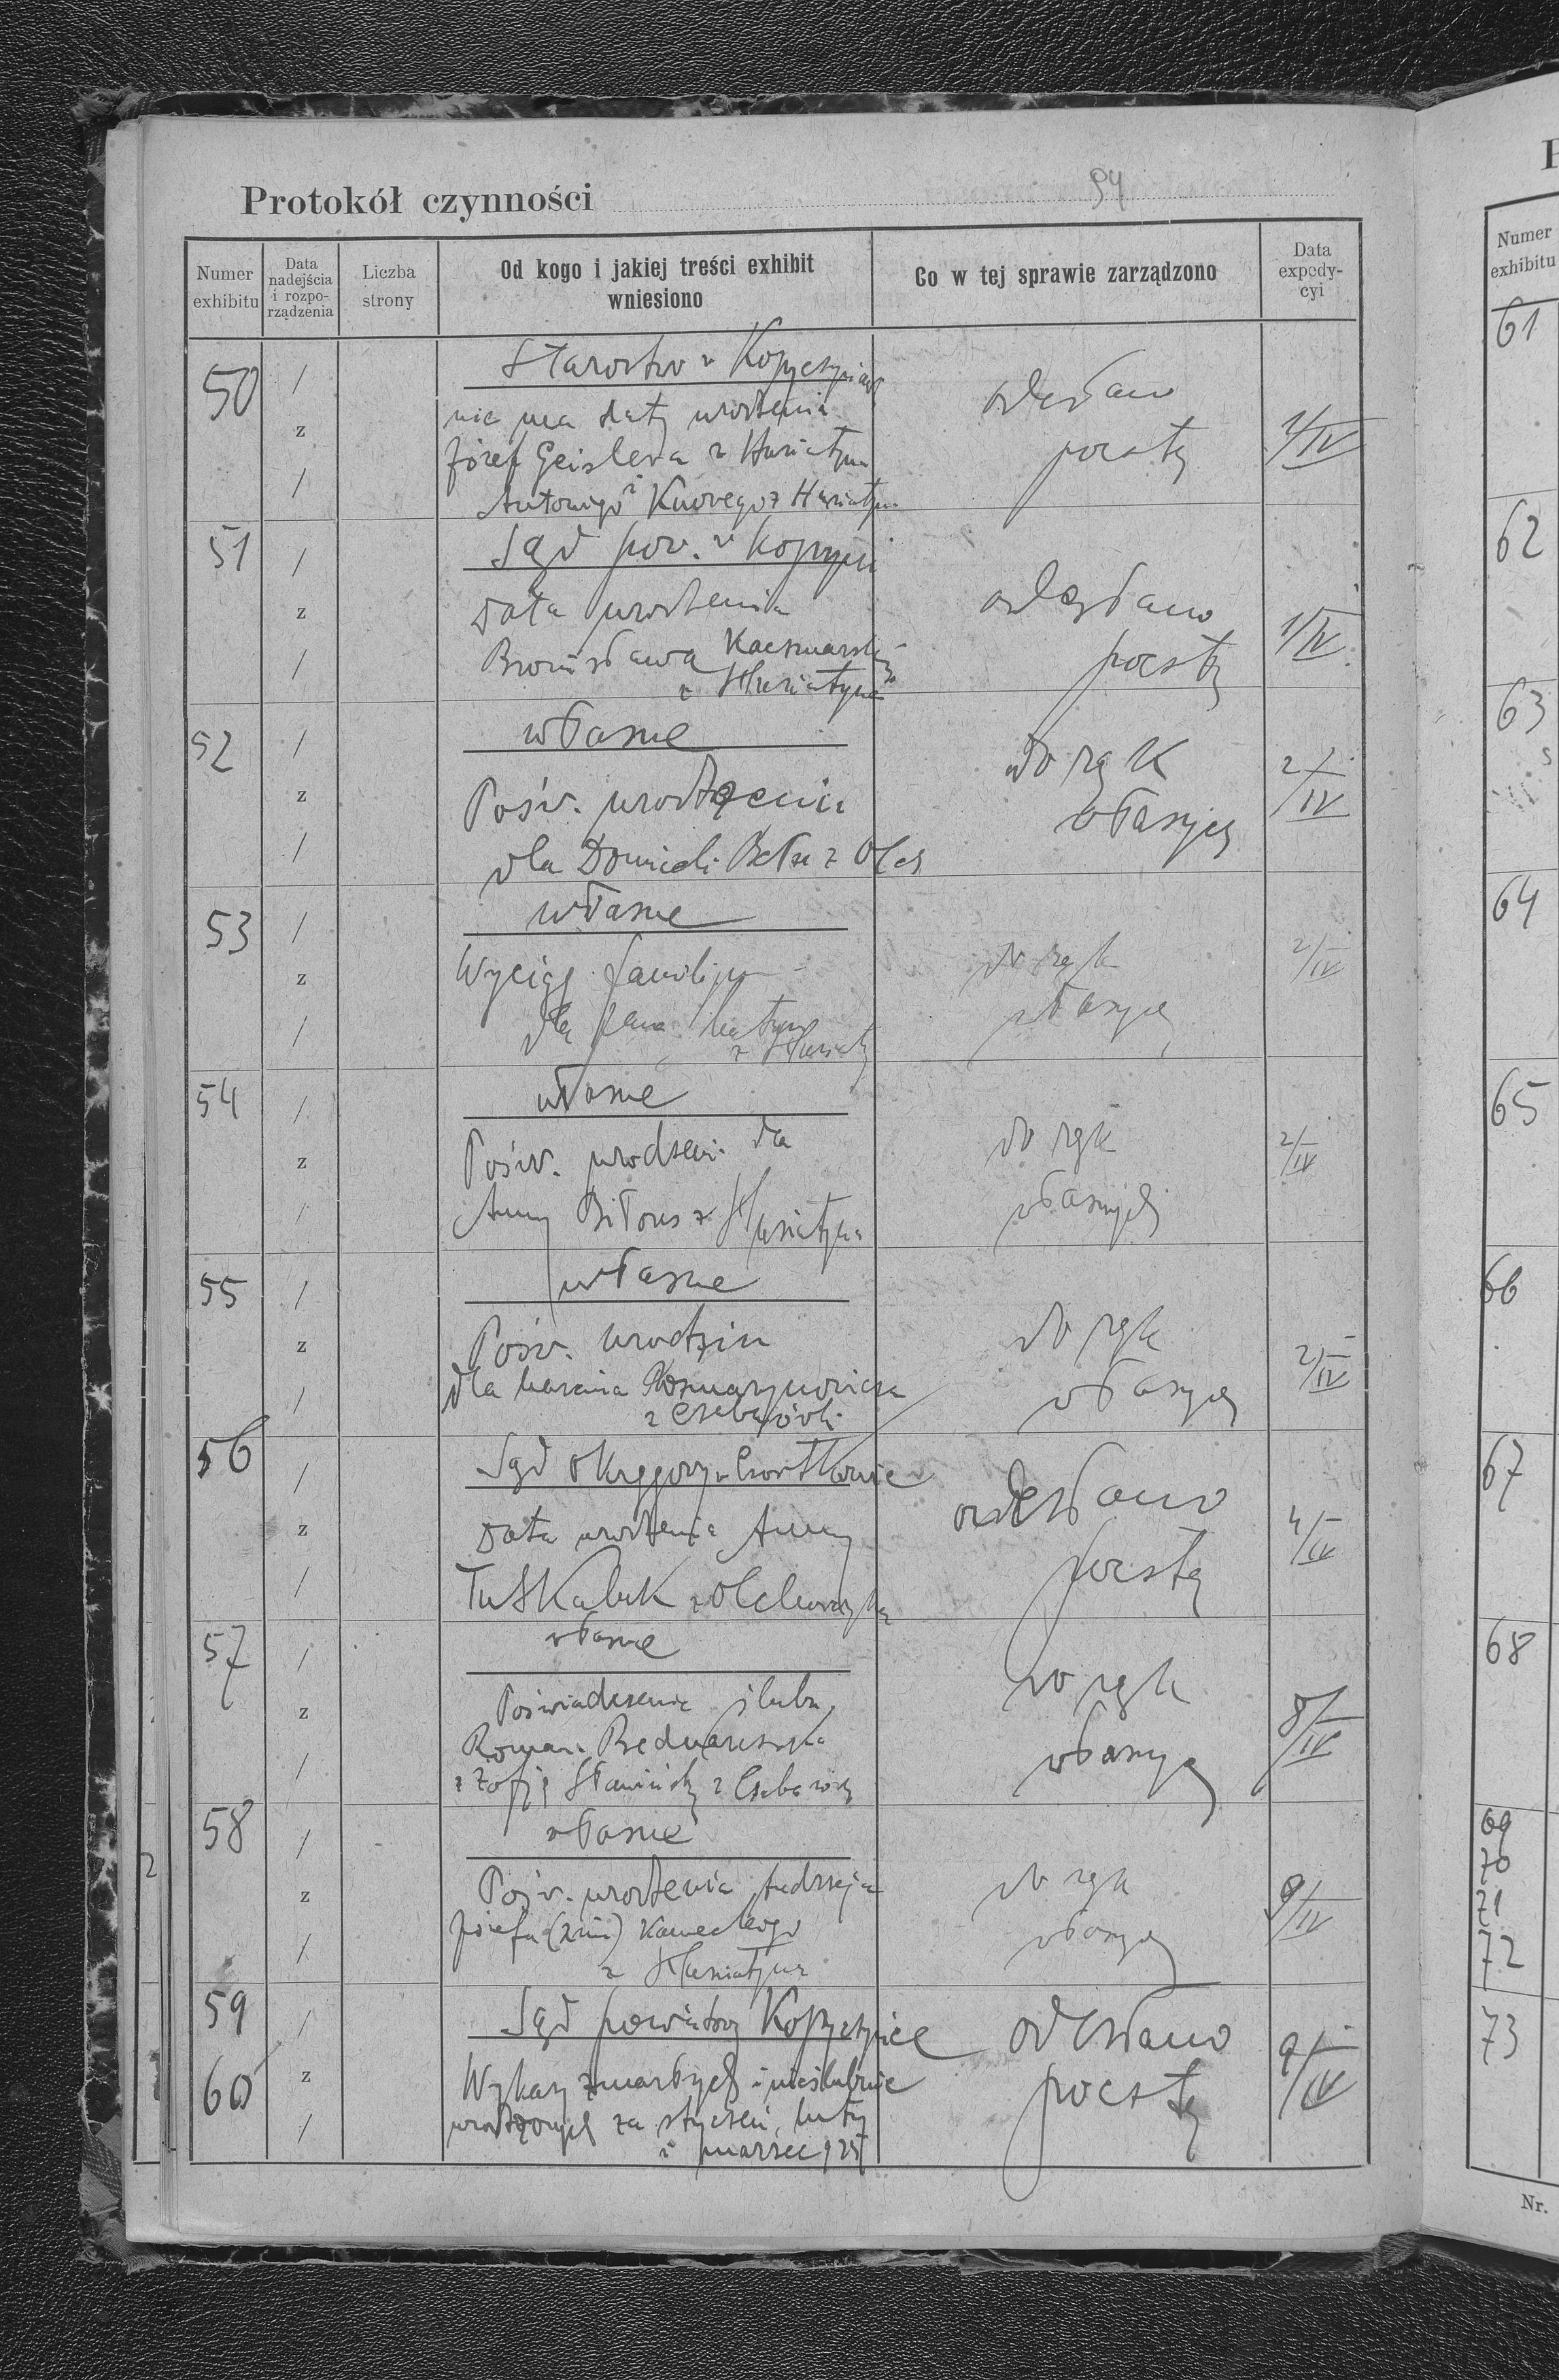 94
Protokół czynności
Numer exhibitu
Data nadejścia i rozporządzenia
Liczba strony
Od kogo i jakiej treści exhibit wniesiono
Co w tej sprawie zarządzono
Data expedycyi
50
z
Starostwo w Kopyczyńcach
nie ma daty urodzenia
Józef Geislera z Husiatyna
i
Antoniego Kuovego z Husiatyna
odesłano
pocztą
1/IV
51
z
Sąd pow. w Kopyczyń
Data urodzenia
Bronisława Kaczmarski
z Husiatyna
odesłano
pocztą
1/IV
52
z
własne
Pośw. urodzenia
dla Domiceli z Olch
do rąk
własnych
2/IV
53
z
własne
Wyciąg familijny
dla
z Husiaty
do rąk
własnych
2/IV
54
z
własne
Pośw. urodzeni dla
Anny Biłous z Husiatyna
do rąk
własnych
2/IV
55
z
własne
Pośw. urodzin
dla Marcina Rozmarynowicza
z Czabarówki
do rąk
własnych
2/IV
56
z
Sąd okręgowy w Czortkowie
Data urodzenia Anny
Tuskaluk z Olchowczyka
odesłano
pocztą
4/IV
57
z
własne
Poświadczenie ślubu
Romana Bednarczuka
z Zofją Sławińską z Czabarówki
do rąk
własnych
8/IV
58
z
własne
Pośw. urodzenia Andrzeja
Józefa (2 im) Kaweckiego
z Husiatyna
do rąk
własnych
9/IV
59
z
60
Sąd powiatowy Kopyczyńce
Wykazy zmarłych i nieślubnie
urodzonych za styczeń, luty
i marzec 925
odesłano
pocztą
9/IV
2
Numer
exhibitu
61
62
63
64
65
66
67
68
69
70
71
72
73
Nr.